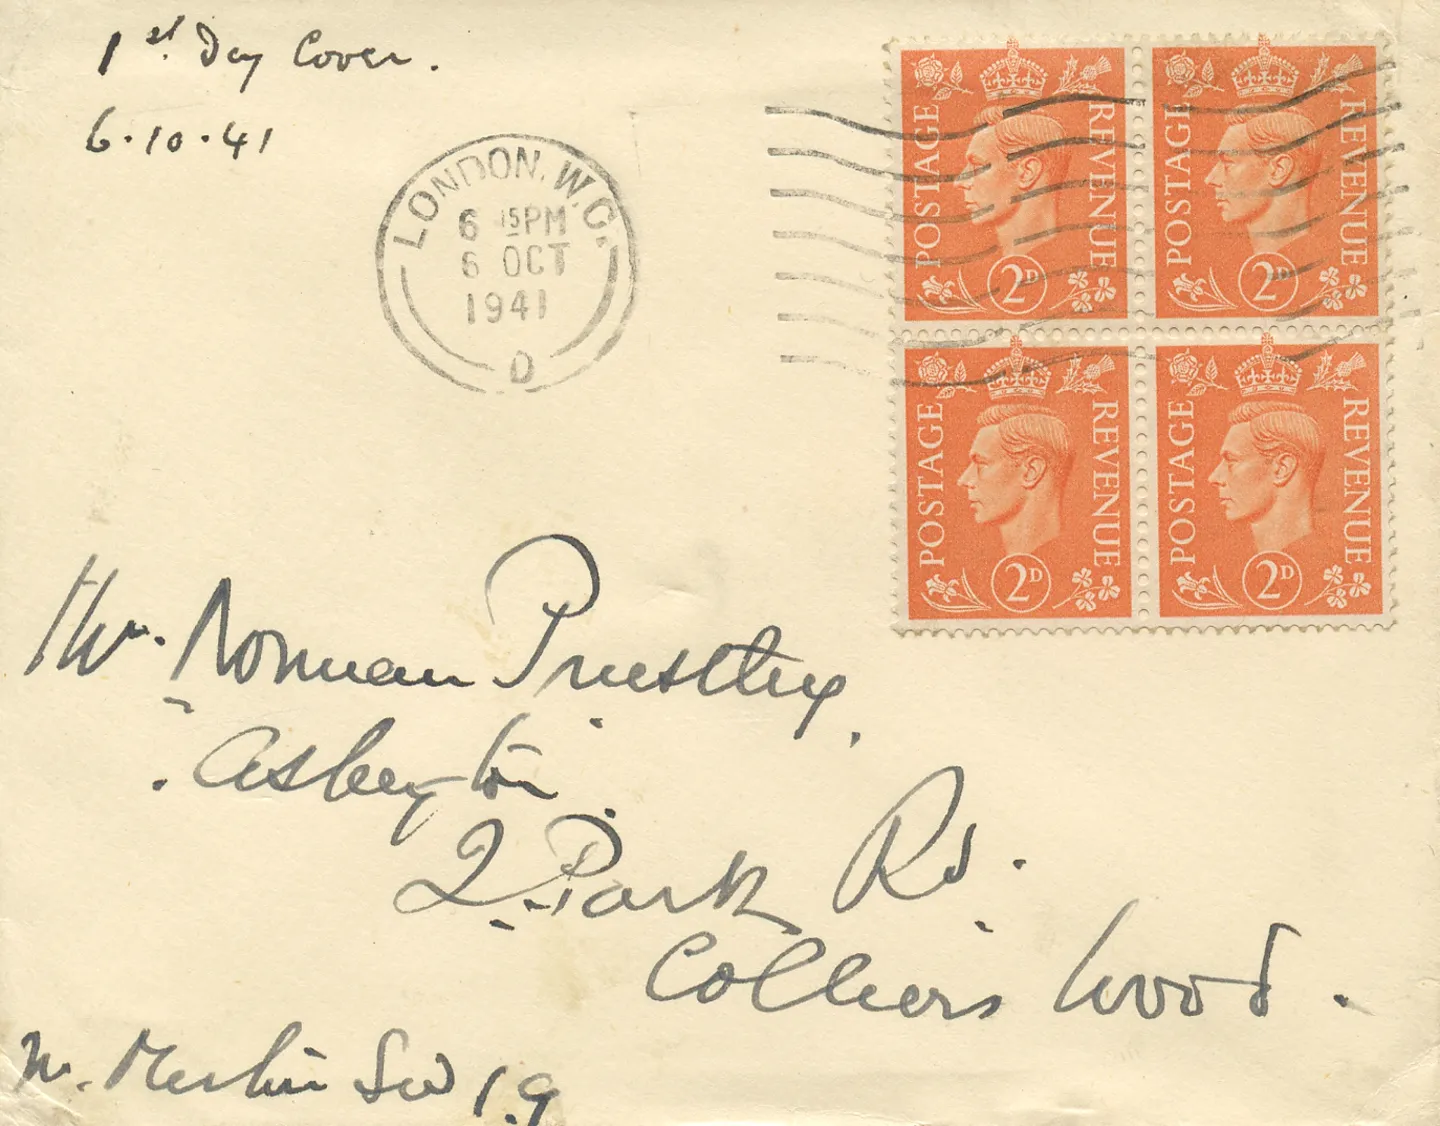 1st Day Cover.
6.10.41
LONDON. W.C.
6 15PM
6 OCT
1941
D
POSTAGE REVENUE
2D
POSTAGE REVENUE
2D
POSTAGE REVENUE
2D
POSTAGE REVENUE
2D
Norman Priestley,
2 Park Rd.
Colliers Wood.
SW 19